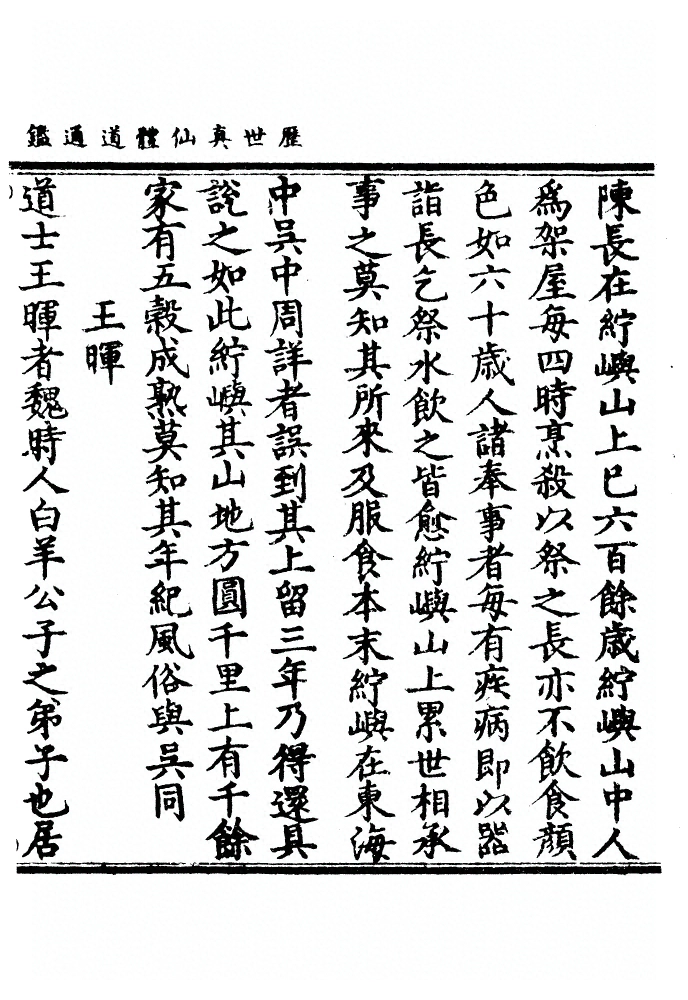 歷世真仙體道通鑑
陳長在紵嶼山上巳六百餘歲紵嶼山中人
爲架屋每四時烹殺以祭之長亦不飲食顏
色如六十歲人諸奉事者每有疾病即以器
詣長乞祭水飲之皆愈紵嶼山上累世相承
事之莫知其所來及服食本末紵嶼在東海
中吳中周詳者誤到其上留三年乃得還具
說之如此紵嶼其山地方圓千里上有千餘
家有五穀成熟莫知其年紀風俗與吳同
王暉
道士王暉者魏時人白羊公子之弟子也居